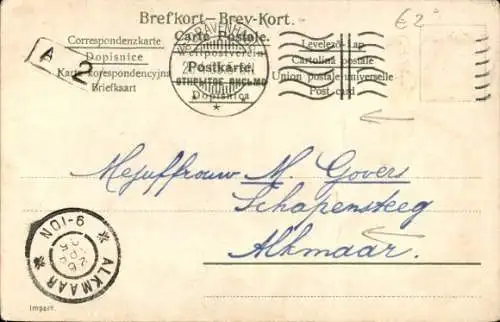 Brefkort—Brev-Kort.
Correspondenzkarte
Carte Postale.
Levelező-Lap
Dopisnice
Weltpostverein
Cartolina postale
Karta korespondencyjna
Postkarte.
Union postale universelle
Briefkaart
ОТКРЫТОЕ ПИСЬМО
Post-card
Dopisnica
A 2
€ 2
Mejuffrouw M. Govers
Schapensteeg
Alkmaar.
ALKMAAR
9-10N
Import.